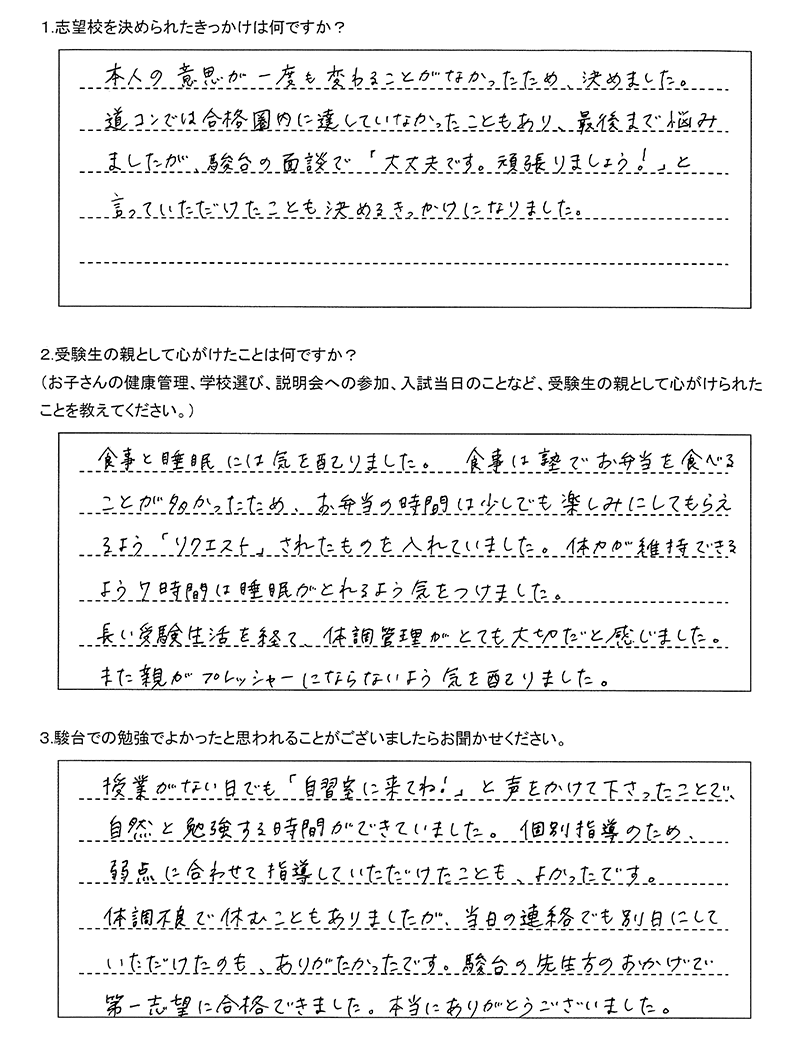 1.志望校を決められたきっかけは何ですか？
本人の意思が一度も変わることがなかったため、決めました。
道コンでは合格圏内に達していなかったこともあり、最後まで悩み
ましたが、駿台の面談で「大丈夫です。頑張りましょう！」と
言っていただけたことも決めるきっかけになりました。
2.受験生の親として心がけたことは何ですか？
（お子さんの健康管理、学校選び、説明会への参加、入試当日のことなど、受験生の親として心がけられた
ことを教えてください。）
食事と睡眠には気を配りました。 食事は塾でお弁当を食べる
ことが多かったため、お弁当の時間は少しでも楽しみにしてもらえ
るよう「リクエスト」されたものを入れていました。体力が維持できる
よう7時間は睡眠がとれるよう気をつけました。
長い受験生活を経て、体調管理がとても大切だと感じました。
また親がプレッシャーにならないよう気を配りました。
3.駿台での勉強でよかったと思われることがございましたらお聞かせください。
授業がない日でも「自習室に来てね！」と声をかけて下さったことで、
自然と勉強する時間ができていました。個別指導のため、
弱点に合わせて指導していただけたことも、よかったです。
体調不良で休むこともありましたが、当日の連絡でも別日にして
いただけたのも、ありがたかったです。駿台の先生方のおかげで
第一志望に合格できました。本当にありがとうございました。